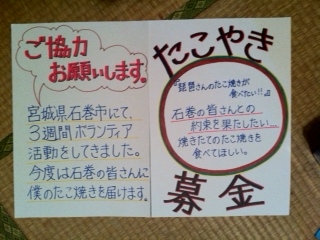 ご協力
お願いします。
宮城県石巻市にて、
3週間ボランティア
活動をしてきました。
今度は石巻の皆さんに
僕のたこ焼きを届けます。
たこやき
『琵琶さんのたこ焼きが
食べたい!!』
石巻の皆さんとの
約束を果たしたい…
焼きたてのたこ焼きを
食べてほしい。
募金